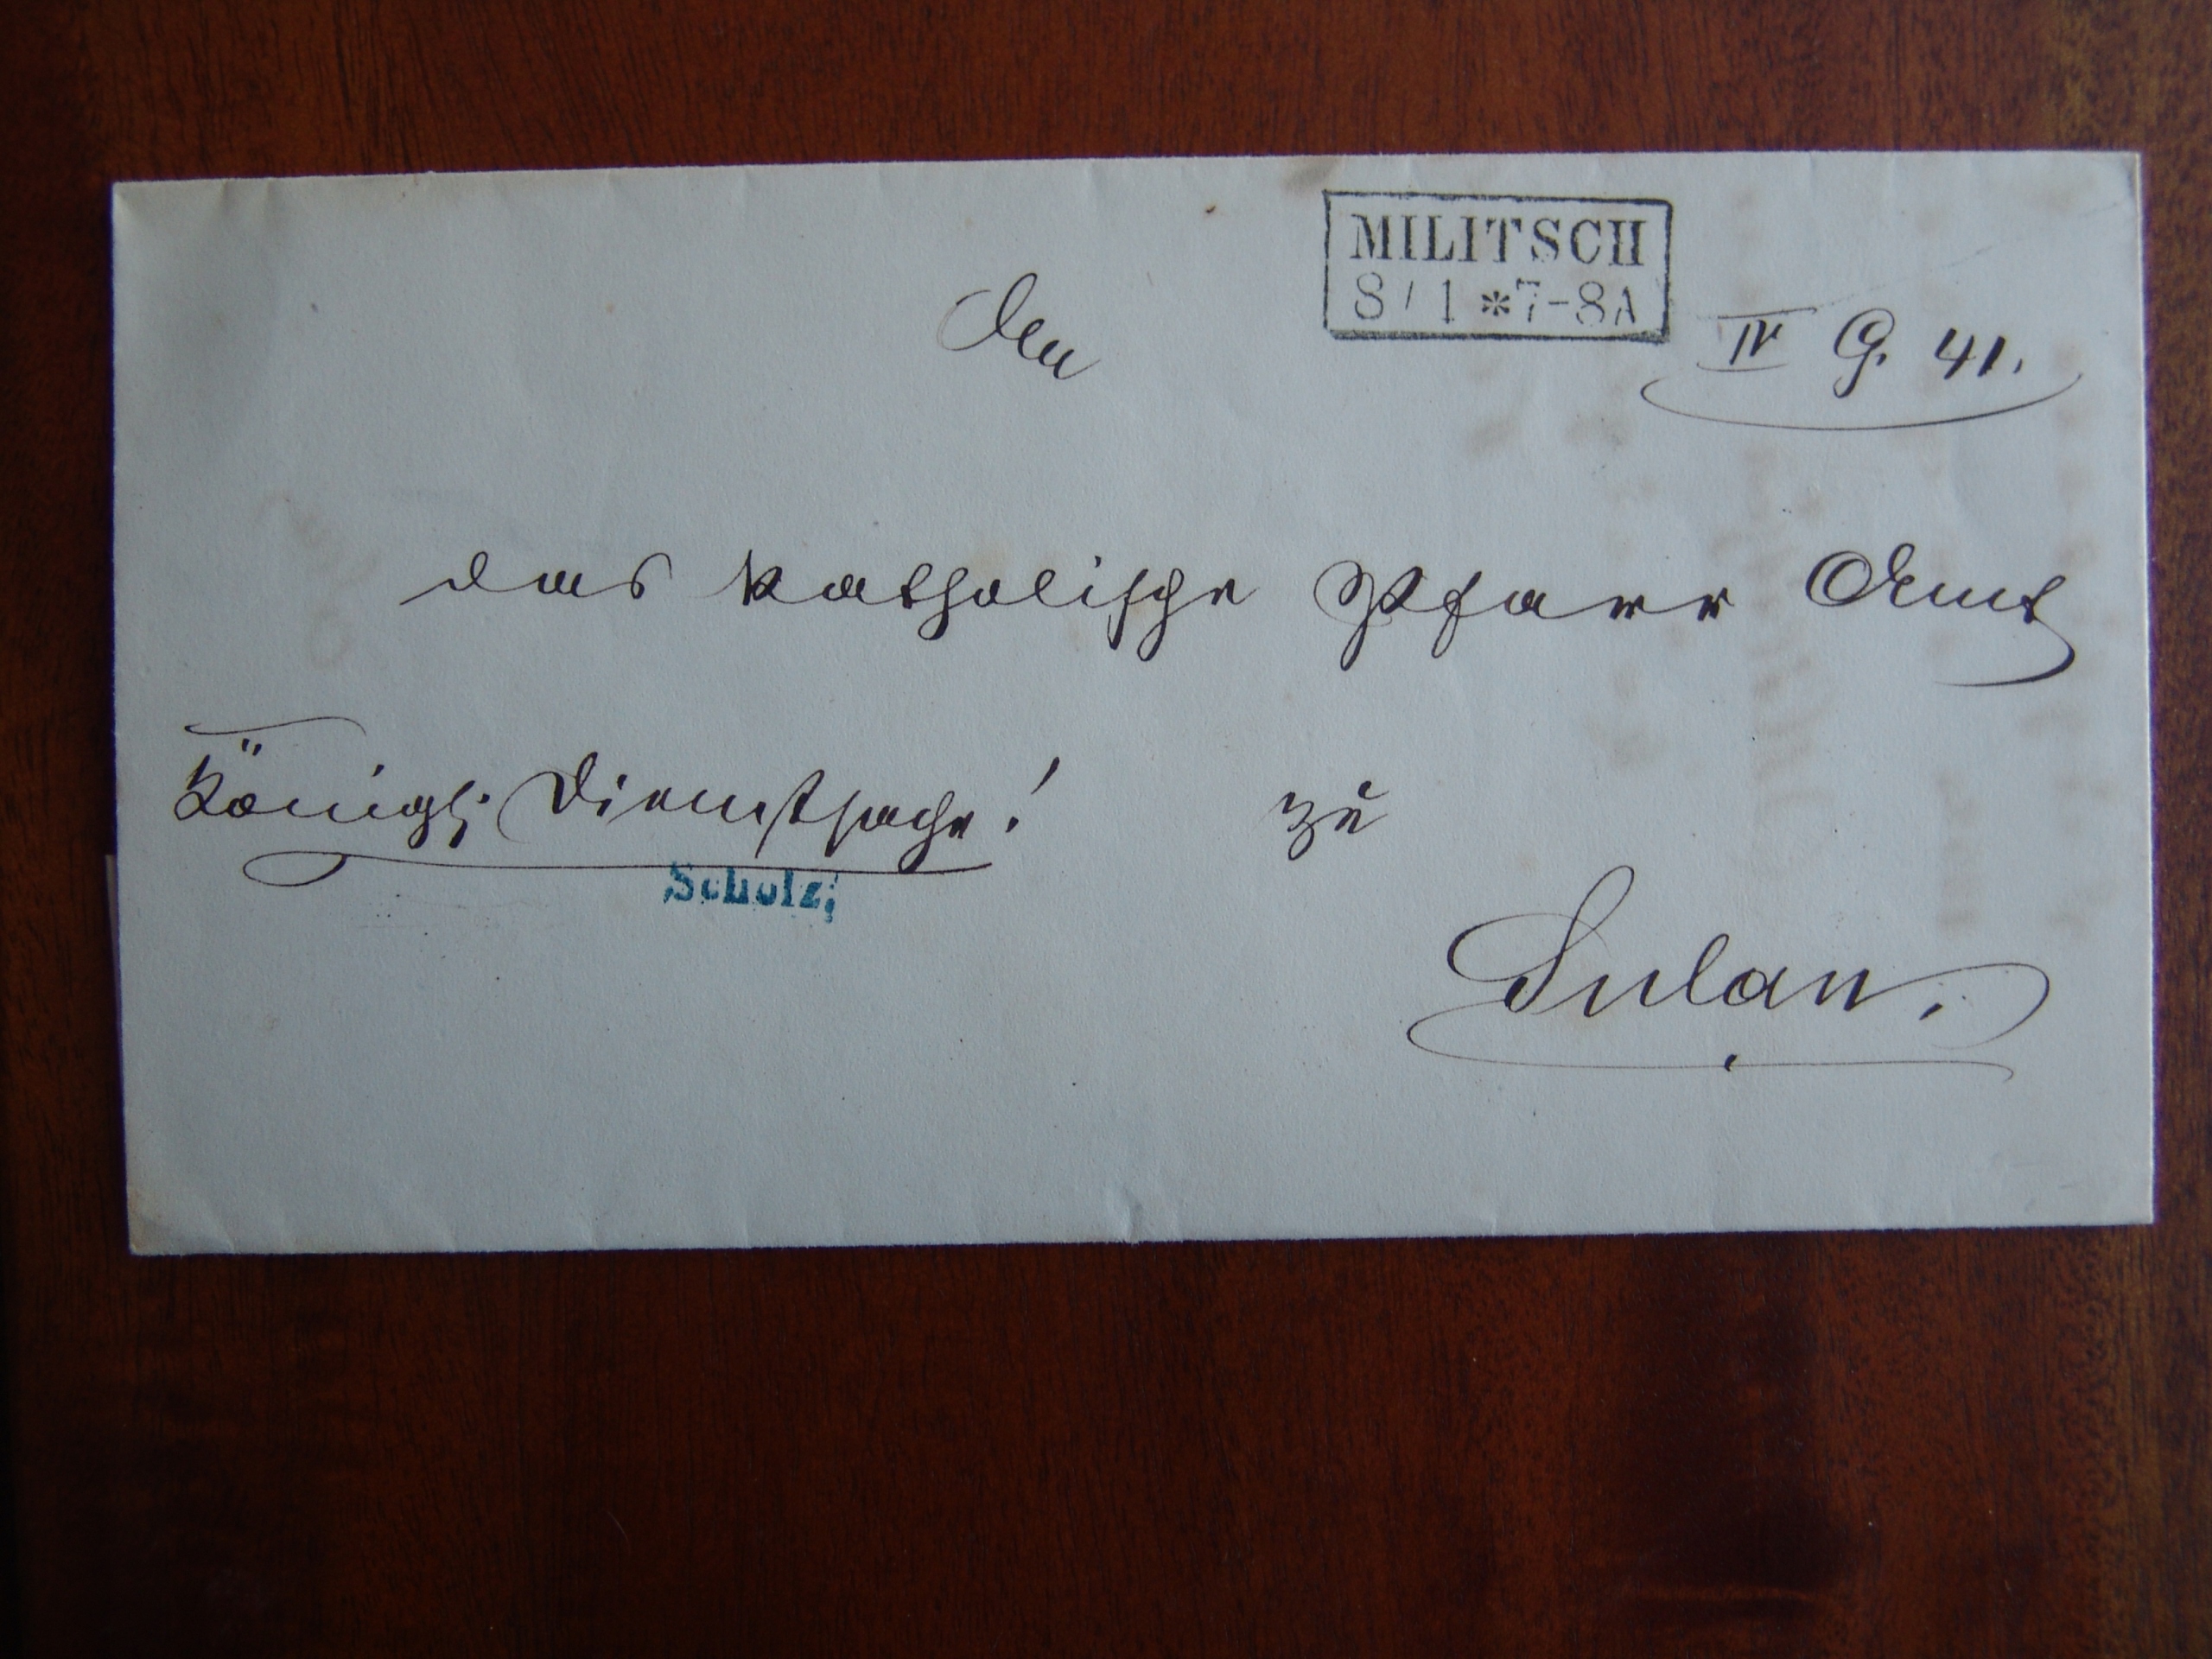 MILITSCH
8/1 * 7-8A
An
IV G. 41.
das katholische Pfarr Amt
Königl. Dienstsache!
zu
Scholz;
Sulau.